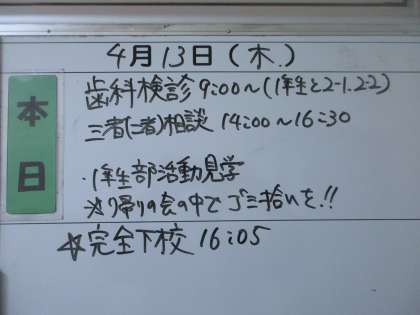 4月13日(木.)
本日
歯科検診 9:00～(1年生と2-1.2-2)
三者(二者)相談 14:00～16:30
・1年生部活動見学
※帰りの会の中でゴミ拾いを!!
☆完全下校 16:05